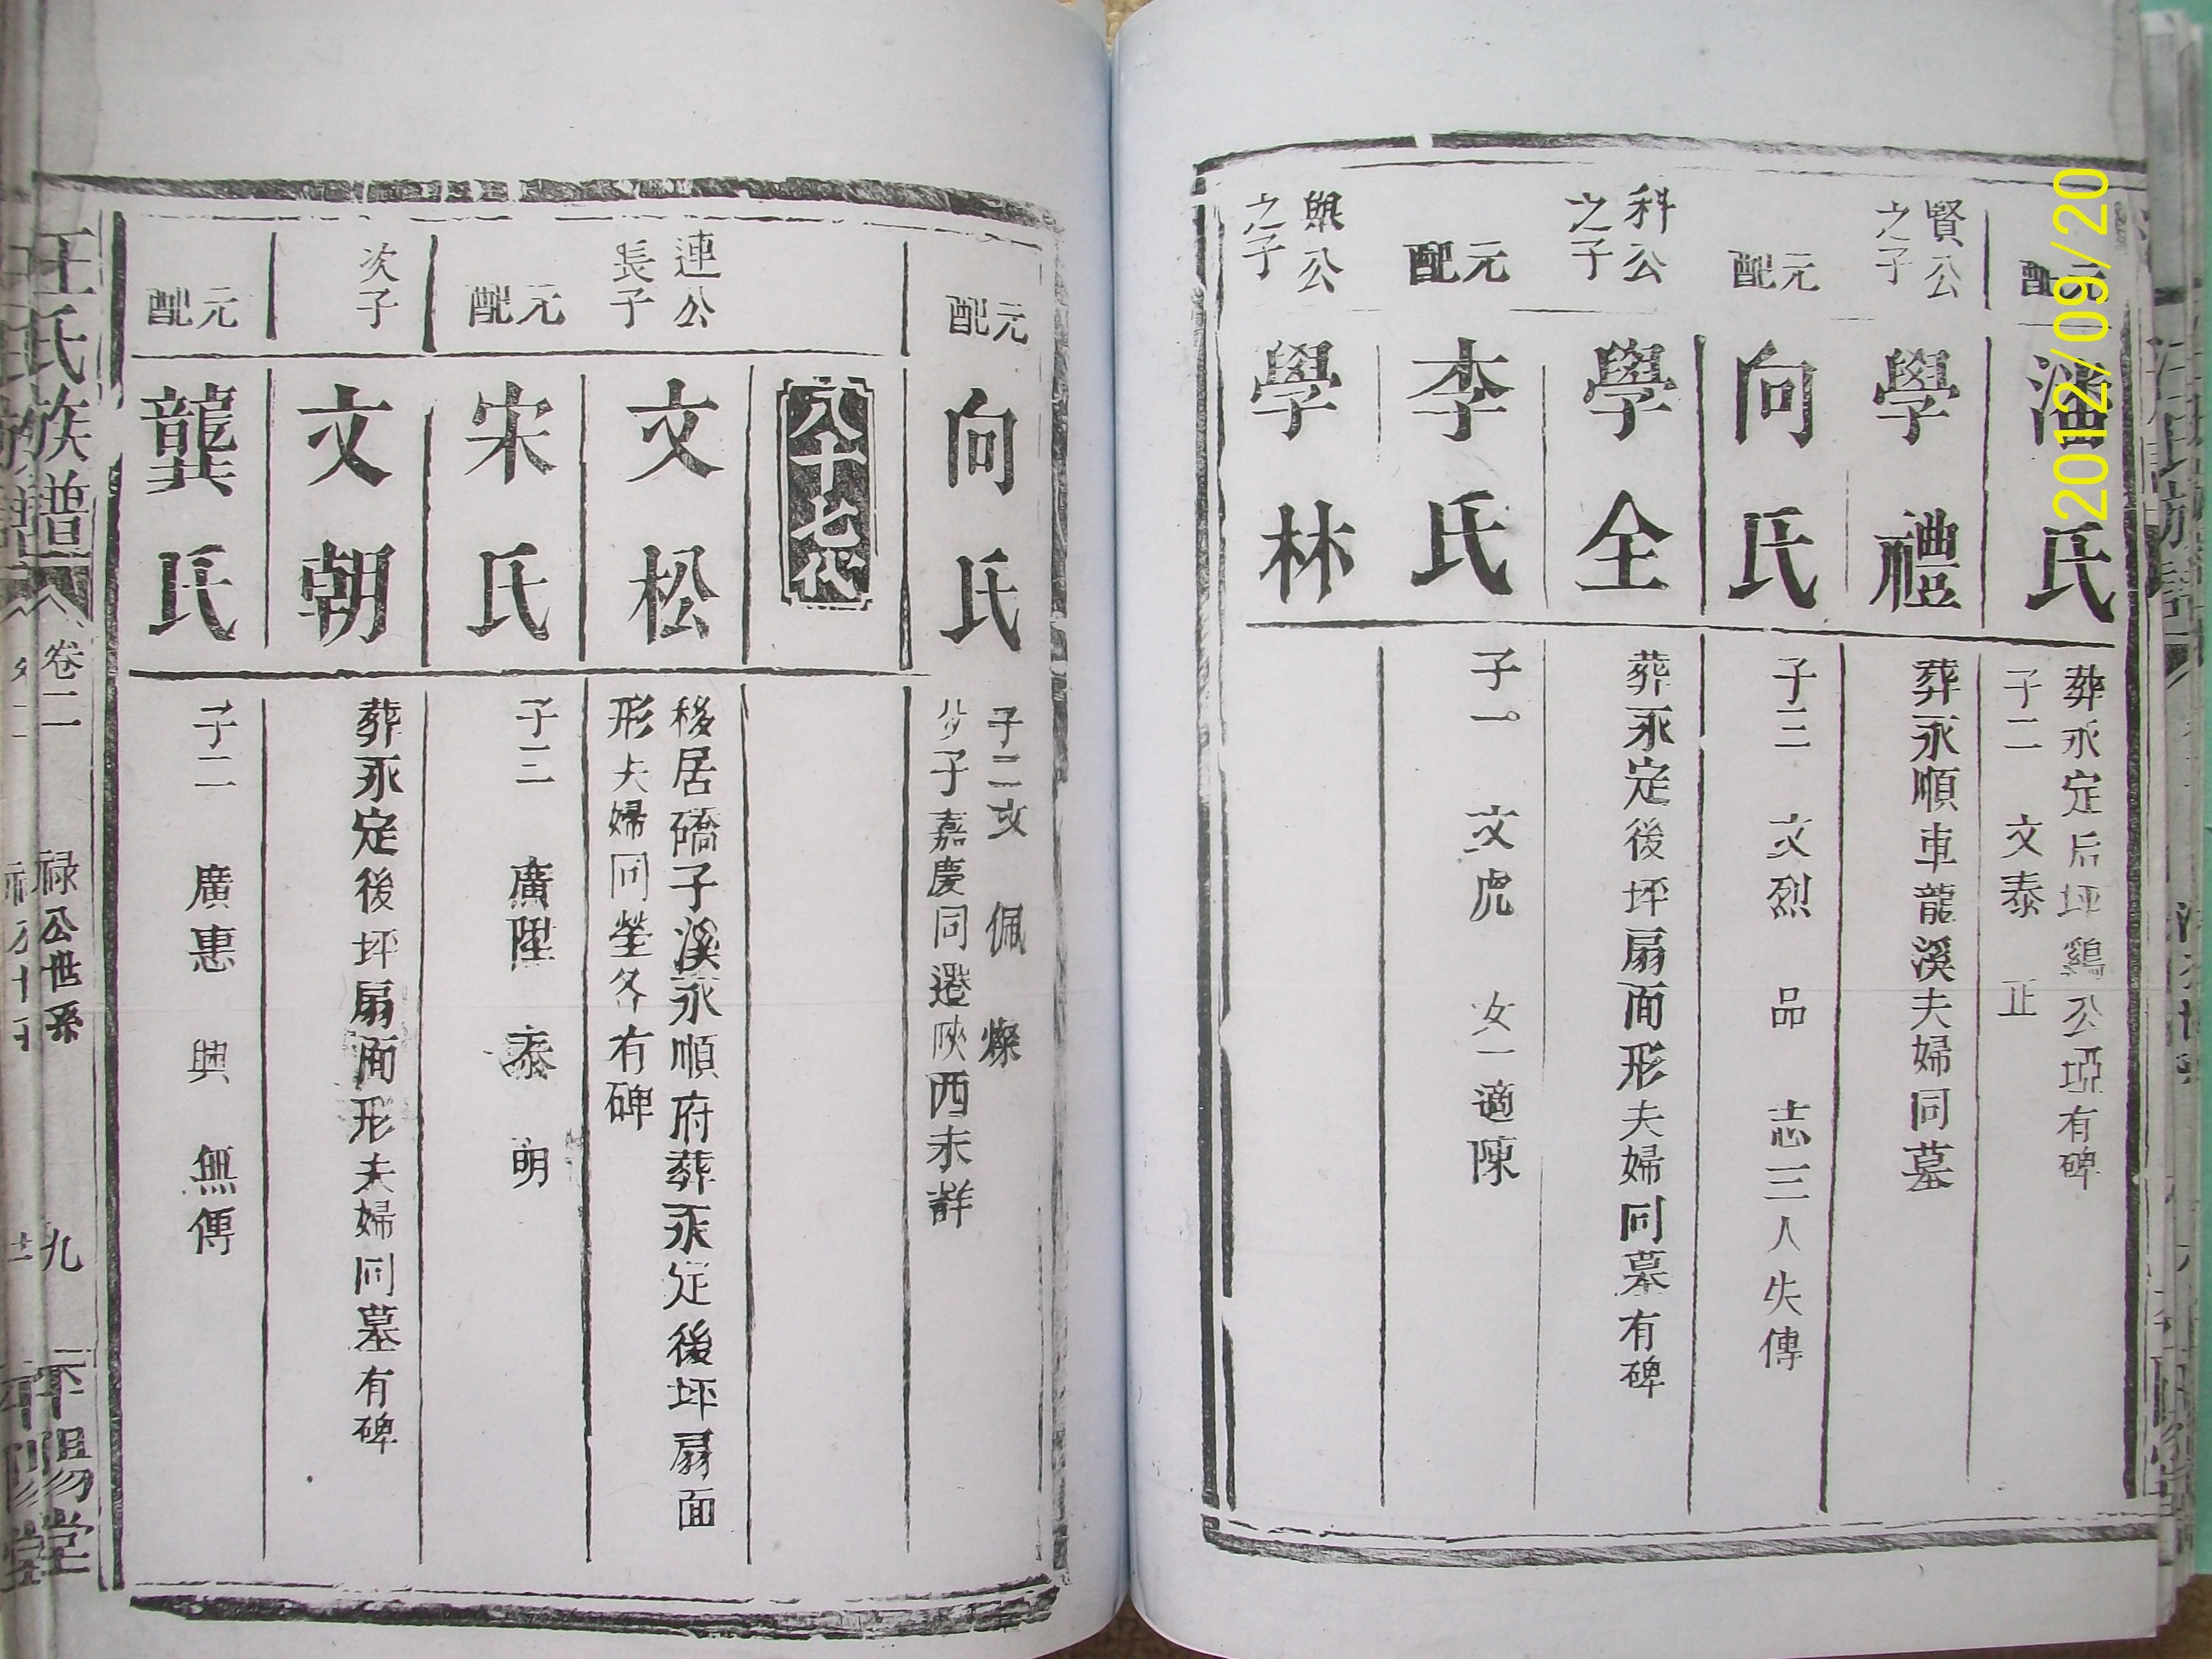 元配
潘氏
葬永定后坪鷄公埡有碑
子二 文泰 正
賢公之子
學禮
葬永順車龍溪夫婦同墓
元配
向氏
子三 文烈 品 志三人失傳
科公之子
學全
葬永定後坪扇面形夫婦同墓有碑
元配
李氏
子一 文虎 女一適陳
與公之子
學林
元配
向氏
子二文 佩 燦
少子嘉慶同遷陝西未詳
八十七代
連公長子
文松
移居礄子溪永順府葬永定後坪扇面
形夫婦同塋各有碑
元配
宋氏
子三 廣陞 泰 明
次子
文朝
葬永定後坪扇面形夫婦同墓有碑
元配
龔氏
子二 廣惠 興 無傳
汪氏族譜 卷二 禄公世系 九 平陽堂
2012/09/20